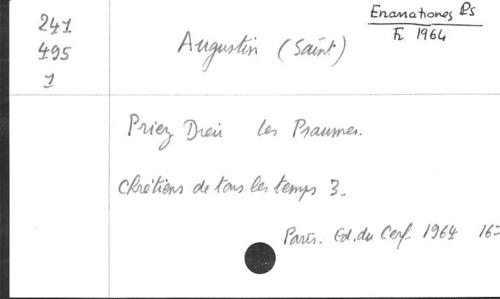 241
495
1
Enarrationes Ps
F. 1964
Augustin (Saint)
Priez Dieu les Psaumes.
Chrétiens de tous les temps 3.
Paris. Ed. du Cerf. 1964 16-